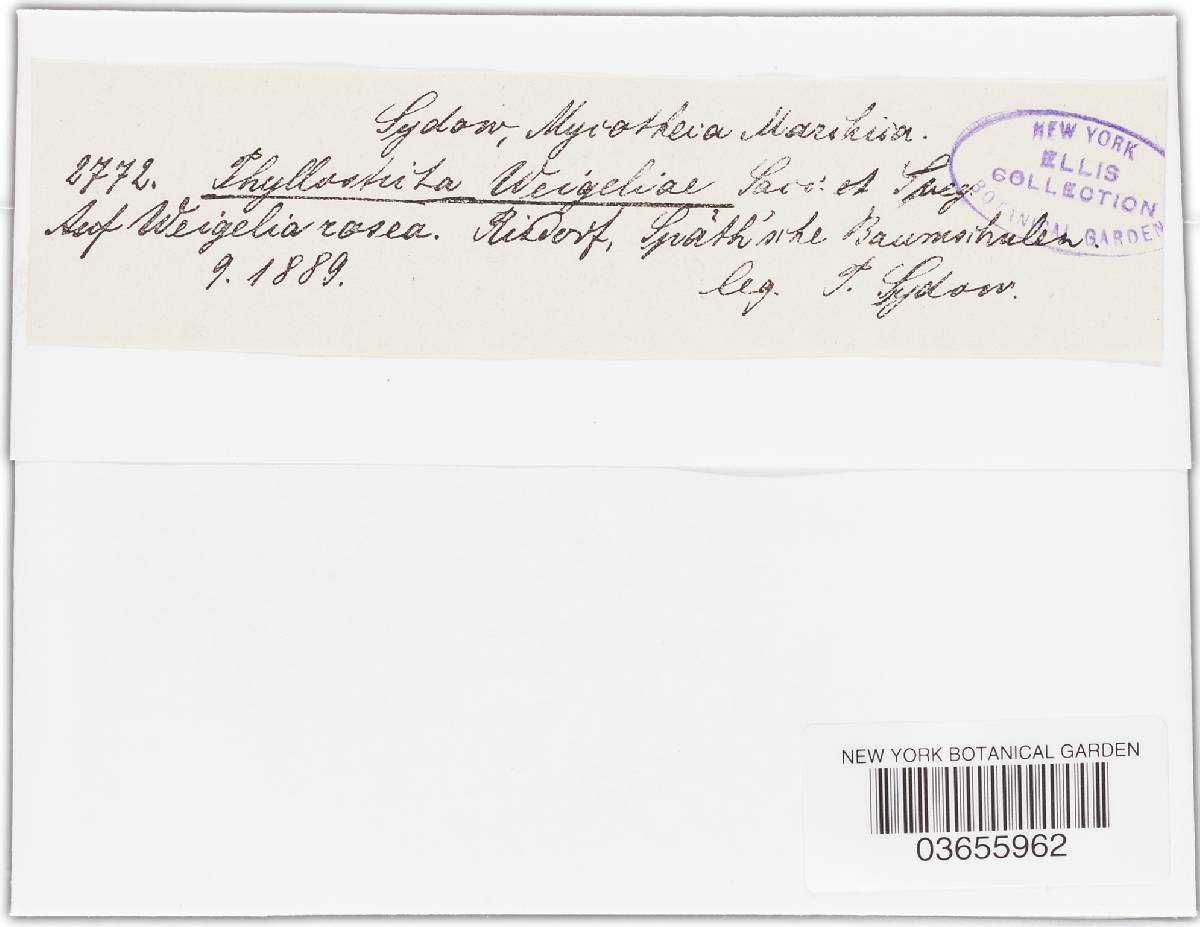 Sydow, Mycotheca Marchica.
2772. Phyllosticta Weigeliae Sacc. et Speg.
Auf Weigelia rosea. Rixdorf, Späth'sche Baumschulen.
9. 1889. leg. P. Sydow.
NEW YORK
ELLIS
COLLECTION
BOTANICAL GARDEN
NEW YORK BOTANICAL GARDEN
03655962